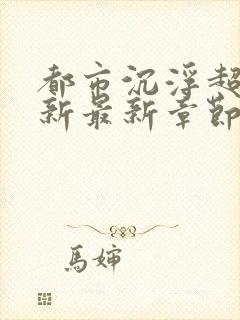 都市沉浮超
新最新章節
馬嬸